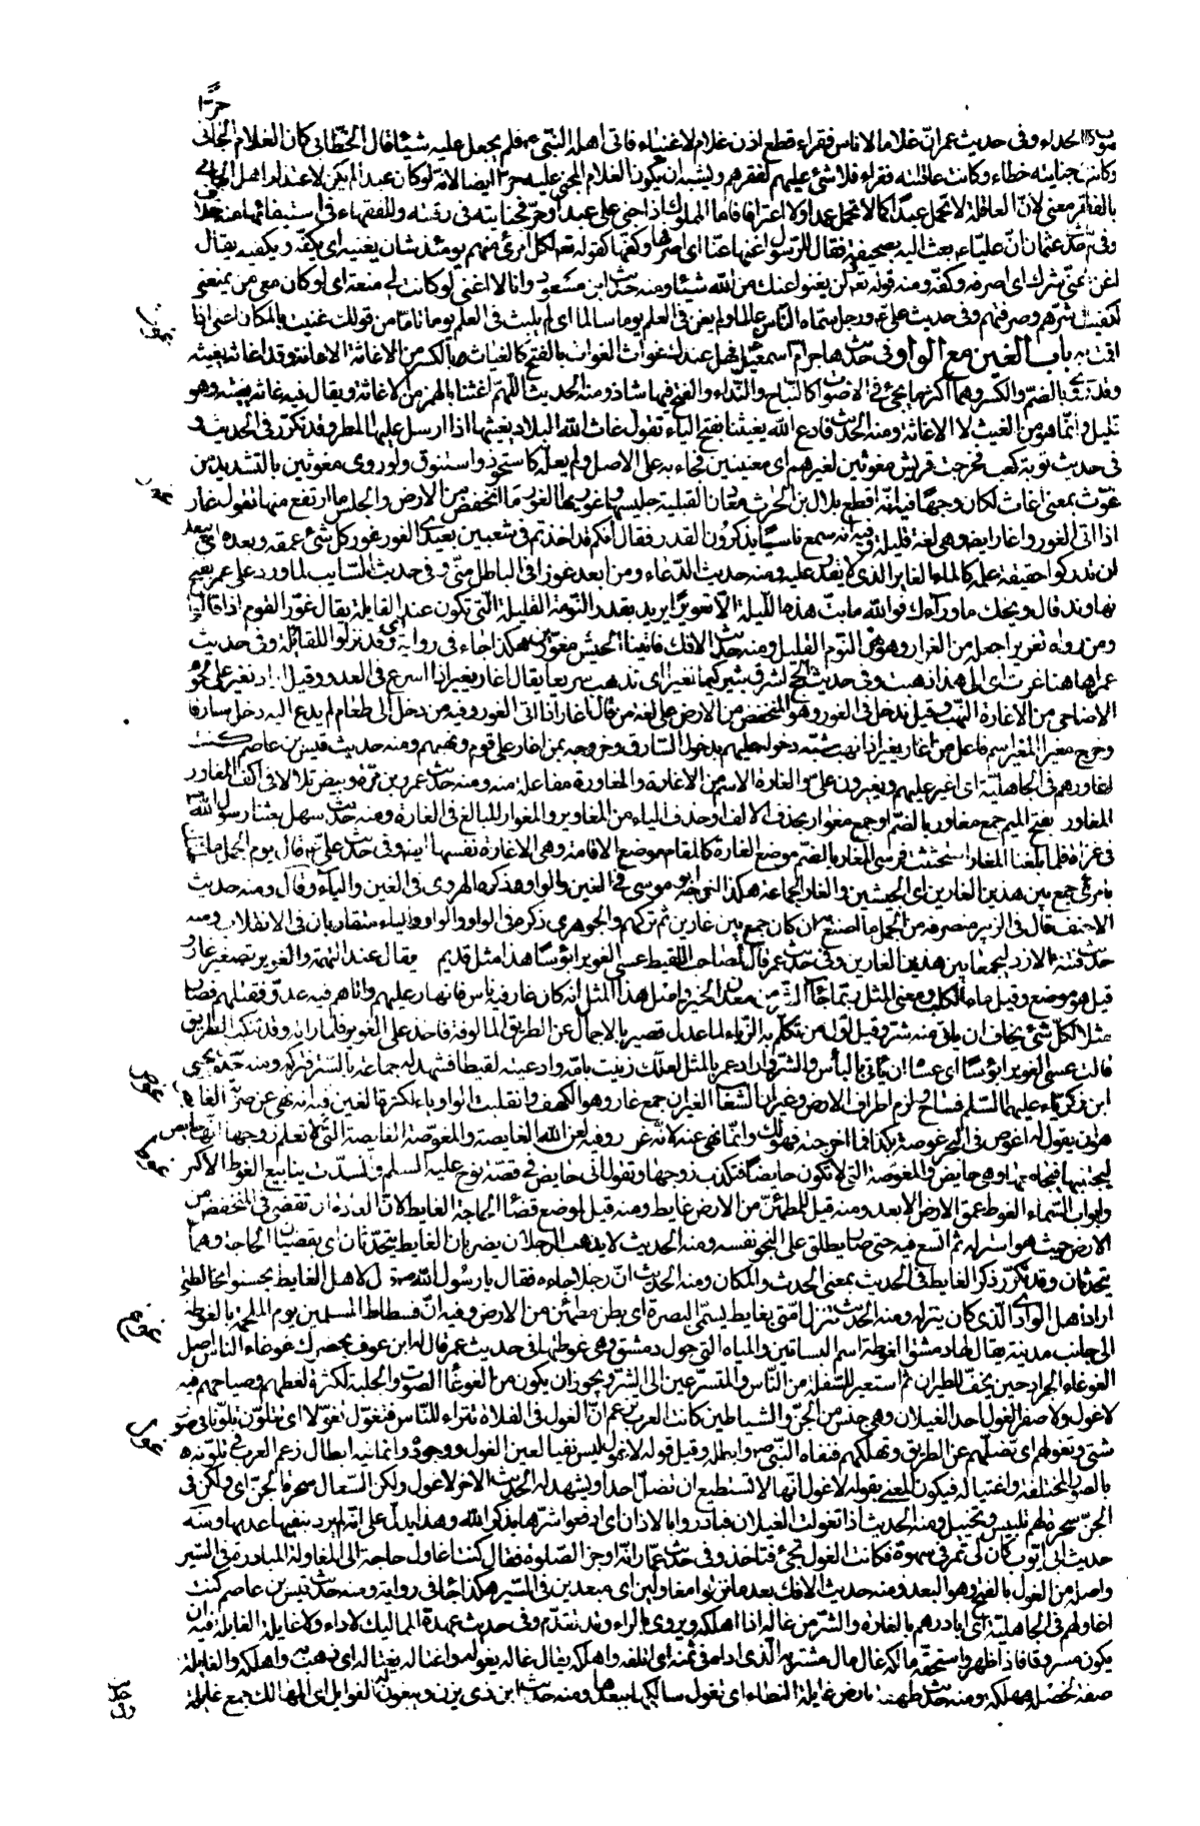 حرًّا
صوت الحداء وفى حديث عمران غلاما لاناس فقراء قطع اذن غلام لاغنياء فاتى اهله النبي فلم يجعل عليه شيئا قال الخطابى كان الغلام الجانى
وكانت جنايته خطاء وكانت عاقلته فقراء فلا شئ عليهم لفقرهم ويشبه ان يكون الغلام المجنى عليه حرا ايضا لانه لو كان عبدا لم يكن لاعتذار اهل الجانى
بالفقر معنى لانّ العاقلة لا تحمل عبدًا كما لا تحمل عمدا ولا اعترافا فاما المملوك اذا جنى على عبد او حر فجنايته فى رقبته وللفقهاء فى استيفائها منه خلاف
وفى حديث عثمان انّ عليّا بعث اليه بصحيفة فقال للرسول اغنها عنّا اى اصرفها وكفها كقوله تعه لكل امرئ منهم يومئذ شان يغنيه اى يكفّه ويكفيه يقال
اغن عنّى شرك اى اصرفه وكفّه ومنه قوله تعه لن يغنوا عنك من الله شيئا ومنه حديث ابن مسعود وانا لا اغنى لو كانت لى منعة اى لو كان معى من يمنعنى
لكفيت شرهم وصرفتهم وفى حديث على ورجل سماه الناس عالما ولم يغن فى العلم يوما سالما اى لم يلبث فى العلم يوما تاما من قولك غنيت بالمكان اغنى اذا
اقمت به باب الغين مع الواو فى حديث هاجر ام اسمعيل فهل عندك غواث الغواث بالفتح كالغياث بالكسر من الاغاثة الاعانة وقد اغاثه يغيثه
وقد روى بالضم والكسر وهما اكثر ما يجئ فى الاصوات كالنباح والنداء والفتح فيها شاذ ومنه الحديث اللهم اغثنا بالهمز من الاغاثة ويقال فيه غاثه يغيثه وهو
قليل وانّما هو من الغيث لا الاغاثة ومنه الحديث فادع الله يغيثنا بفتح الياء تقول غاث الله البلاد يغيثها اذا ارسل عليها المطر وقد تكرّر فى الحديث و
فى حديث توبة كعب فخرجت قريش مغوثين لغيرهم اى مغيثين فجاء به على الاصل ولم يعله كاستحوذ واستنوق ولو روى مغوثين بالتشديد من
غوّث بمعنى غاث لكان وجها فيه انه اقطع بلال بن الحرث معادن القبلية جلسيها وغوريها الغور ما انخفض من الارض والجلس ما ارتفع منها تقول غار
اذا اتى الغور واغار ايضا وهى لغة قليلة وفيه انه سمع ناسا يذكرون القدر فقال انكم قد اخذتم فى شعبين بعيدى الغور غور كل شئ عمقه وبعده اى يبعد
ان تدركوا حقيقة علمه كالماء الغاير الذى لا يقدر عليه ومنه حديث الدعاء ومن ابعد غورا فى الباطل منّى وفى حديث السايب لما ورد على عمر بفتح
نهاوند قال ويحك ما وراءك فوالله ما بتّ هذه الليلة الا تغويرًا يريد بقدر النومة القليلة التى تكون عند القايلة يقال غوّر القوم اذا قالوا
ومن رواه تغريرا جعله من الغرار وهو النوم القليل ومنه حديث الافك فاتينا الجيش مغوّرين هكذا جاء فى رواية اى قد نزلوا للقائلة وفى حديث
عمر اهاهنا غرت اى الى هذا ذهبت وفى حديث الحج اشرق ثبير كيما نغير اى نذهب سريعا يقال اغار يغير اذا اسرع فى العدو وقيل اراد نغير على لحوم
الاضاحى من الاغارة النهب وقيل ندخل فى الغور وهو المنخفض من الارض على لغة من قال اغار اذا اتى الغور وفيه من دخل الى طعام لم يدع اليه دخل سارقا
وخرج مغيرا المغير اسم فاعل من اغار يغير اذا نهب شبّه دخوله عليهم بدخول السارق وخروجه بمن اغار على قوم ونهبهم ومنه حديث قيس بن عاصم كنت
اغاورهم فى الجاهلية اى اغير عليهم ويغيرون على والغارة الاسم من الاغارة والمغاورة مفاعلة منه ومنه حديث عمرو بن مرة وبيض تلالا فى اكف المغاور
المغاور بفتح الميم جمع مغاور بالضم او جمع مغوار بحذف الالف او حذف الياء من المغاوير والمغوار المبالغ فى الغارة ومنه حديث سهل بعثنا رسول الله
فى غزاة فلما بلغنا المغار استحثثت فرسى المغار بالضم موضع الغارة كالمقام موضع الاقامة وهى الاغارة نفسها ايضا وفى حديث على قال يوم الجمل ما ظنك
بامرئ جمع بين هذين الغارين اى الجيشين والغار الجماعة هكذا اخرجه ابو موسى فى الغين والواو وذكره الهروى فى الغين والياء وقال ومنه حديث
الاحنف قال فى الزبير منصرفه من الجمل ما اصنع به ان كان جمع بين غارين ثم تركهم والجوهرى ذكره فى الواو والواو والياء متقاربان فى الانقلاب ومنه
حديث فتنة الازد ليجمعا بين هذين الغارين وفى حديث عمر قال لصاحب اللقيط عسى الغوير ابؤسًا هذا مثل قديم يقال عند التهمة والغوير تصغير غار و
قيل هو موضع وقيل ماء لكلب ومعنى المثل ربما جاء الشر من معدن الخير واصل هذا المثل انه كان غار فيه ناس فانهار عليهم واتاهم فيه عدوّ فقتلهم فصار
مثلا لكل شئ يخاف ان ياتى منه شر وقيل اول من تكلم به الزباء لما عدل قصير بالاجمال عن الطريق المالوفة فاخذ على الغوير فلما راته وقد تنكب الطريق
قالت عسى الغوير ابؤسا اى عساه ان ياتى بالبأس والشر واراد عمر بالمثل لعلك زنيت بامه وادعيته لقيطا فشهد له جماعة بالستر فتركه ومنه حديث يحيى
ابن زكرياء عليهما السلم فساح ولزم اطراف الارض وغيران الشعاب الغيران جمع غار وهو الكهف وانقلبت الواو ياء لكسرة الغين فيه انه نهى عن ضربة الغايص
هو ان يقول له اغوص فى البحر غوصة بكذا فما اخرجته فهو لك وانما نهى عنه لانه غرر وفيه لعن الله الغايصة والمغوّصة الغايصة التى لا تعلم زوجها انها حايض
ليجتنبها فيجامعها وهى حايض والمغوصة التى لا تكون حايضا فتكذب زوجها وتقول انى حايض فى قصة نوح عليه السلم وانسدّت ينابيع الغوط الاكبر
وابواب السماء الغوط عمق الارض الابعد ومنه قيل للمطمئن من الارض غايط ومنه قيل لموضع قضاء الحاجة الغايط لانّ العادة ان تقضى فى المنخفض من
الارض حيث هو استر له ثم اتسع فيه حتى صار يطلق على النجو نفسه ومنه الحديث لا يذهب الرجلان يضربان الغايط يتحدّثان اى يقضيان الحاجة وهما
يتحدثان وقد تكرّر ذكر الغايط فى الحديث بمعنى الحدث والمكان ومنه الحديث انّ رجلا جاءه فقال يا رسول الله قل لاهل الغايط يحسنوا مخالطتى
اراد اهل الوادى الذى كان ينزله ومنه الحديث تنزل امّتى بغايط يسمّى البصرة اى بطن مطمئن من الارض وفيه انّ فسطاط المسلمين يوم الملحمة بالغوطة
الى جانب مدينة يقال لها دمشق الغوطة اسم البساتين والمياه التى حول دمشق وهى غوطتها فى حديث عمر قال له ابن عوف يحضرك غوغاء الناس اصل
الغوغاء الجراد حين يخفّ للطيران ثم استعير للسفلة من الناس والمتسرعين الى الشر ويجوز ان يكون من الغوغاء الصوت والجلبة لكثرة لغطهم وصياحهم فيه
لا غول ولا صفر الغول احد الغيلان وهى جنس من الجن والشياطين كانت العرب تزعم انّ الغول فى الفلاة تتراءى للناس فتغوّل تغوّلا اى تتلوّن تلوّنا فى صور
شتى وتغولهم اى تضلّهم عن الطريق وتهلكهم فنفاه النبى ص وابطله وقيل قوله لا غول ليس نفيا لعين الغول ووجوده وانما فيه ابطال زعم العرب فى تلونه
بالصور المختلفة واغتياله فيكون المعنى بقوله لا غول انها لا تستطيع ان تضلّ احدا ويشهد له الحديث الاخر لا غول ولكن السعالى سحرة الجنّ اى ولكن فى
الجنّ سحرة لهم تلبيس وتخييل ومنه الحديث اذا تغولت الغيلان فبادروا بالاذان اى ادفعوا شرها بذكر الله وهذا يدلّ على انه لم يرد بنفيها عدمها ومنه
حديث ابى ايوب كان لى تمر فى سهوة فكانت الغول تجئ فتاخذ وفى حديث عمّار انّه اوجز الصلوة فقال كنت اغاول حاجة الى المغاولة المبادرة فى السير
واصله من الغول بالفتح وهو البعد ومنه حديث الافك بعد ما نزلوا مغاولين اى مبعدين فى السير هكذا جاء فى رواية ومنه حديث قيس بن عاصم كنت
اغاولهم فى الجاهلية اى ابادرهم بالغارة والشر من غاله اذا اهلكه ويروى بالراء وقد تقدّم وفى حديث عهدة المماليك لا داء ولا غايلة الغايلة فيه ان
يكون مسروقا فاذا ظهر واستحقه مالكه غال مال مشتريه الّذى اداه فى ثمنه اى اتلفه واهلكه يقال غاله يغوله واغتاله يغتاله اى ذهب به واهلكه والغايلة
صفة لخصلة مهلكة ومنه حديث طهفة بارض غايلة النطاء اى تغول سالكها ببعدها ومنه حديث ابن ذى يزن ويبغون له الغوايل اى المهالك جمع غايلة
غوث
غور
غوص
غوط
غوغا
غول
وفى حديث